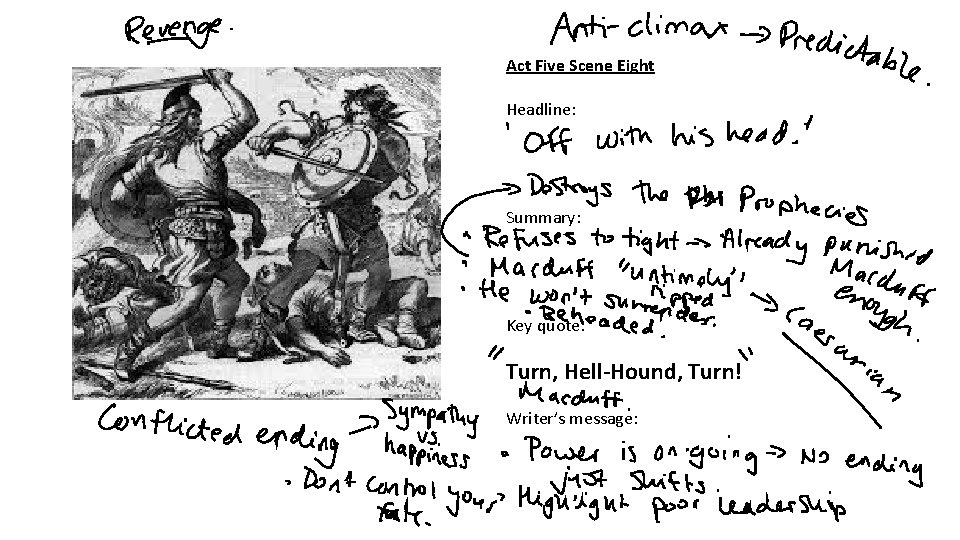 Revenge.
Anti-climax → Predictable.
Act Five Scene Eight
Headline:
'Off with his head!'
→ Destroys the Prophecies
Summary:
• Refuses to fight → Already punished Macduff enough.
• Macduff "untimely" ripped → Caesarian
• He won't surrender.
• Beheaded.
Key quote:
"Turn, Hell-Hound, Turn!"
Macduff.
Writer's message:
• Power is on-going → No ending just shifts.
Conflicted ending → Sympathy vs. happiness
• Don't control your fate. → Highlight poor leadership